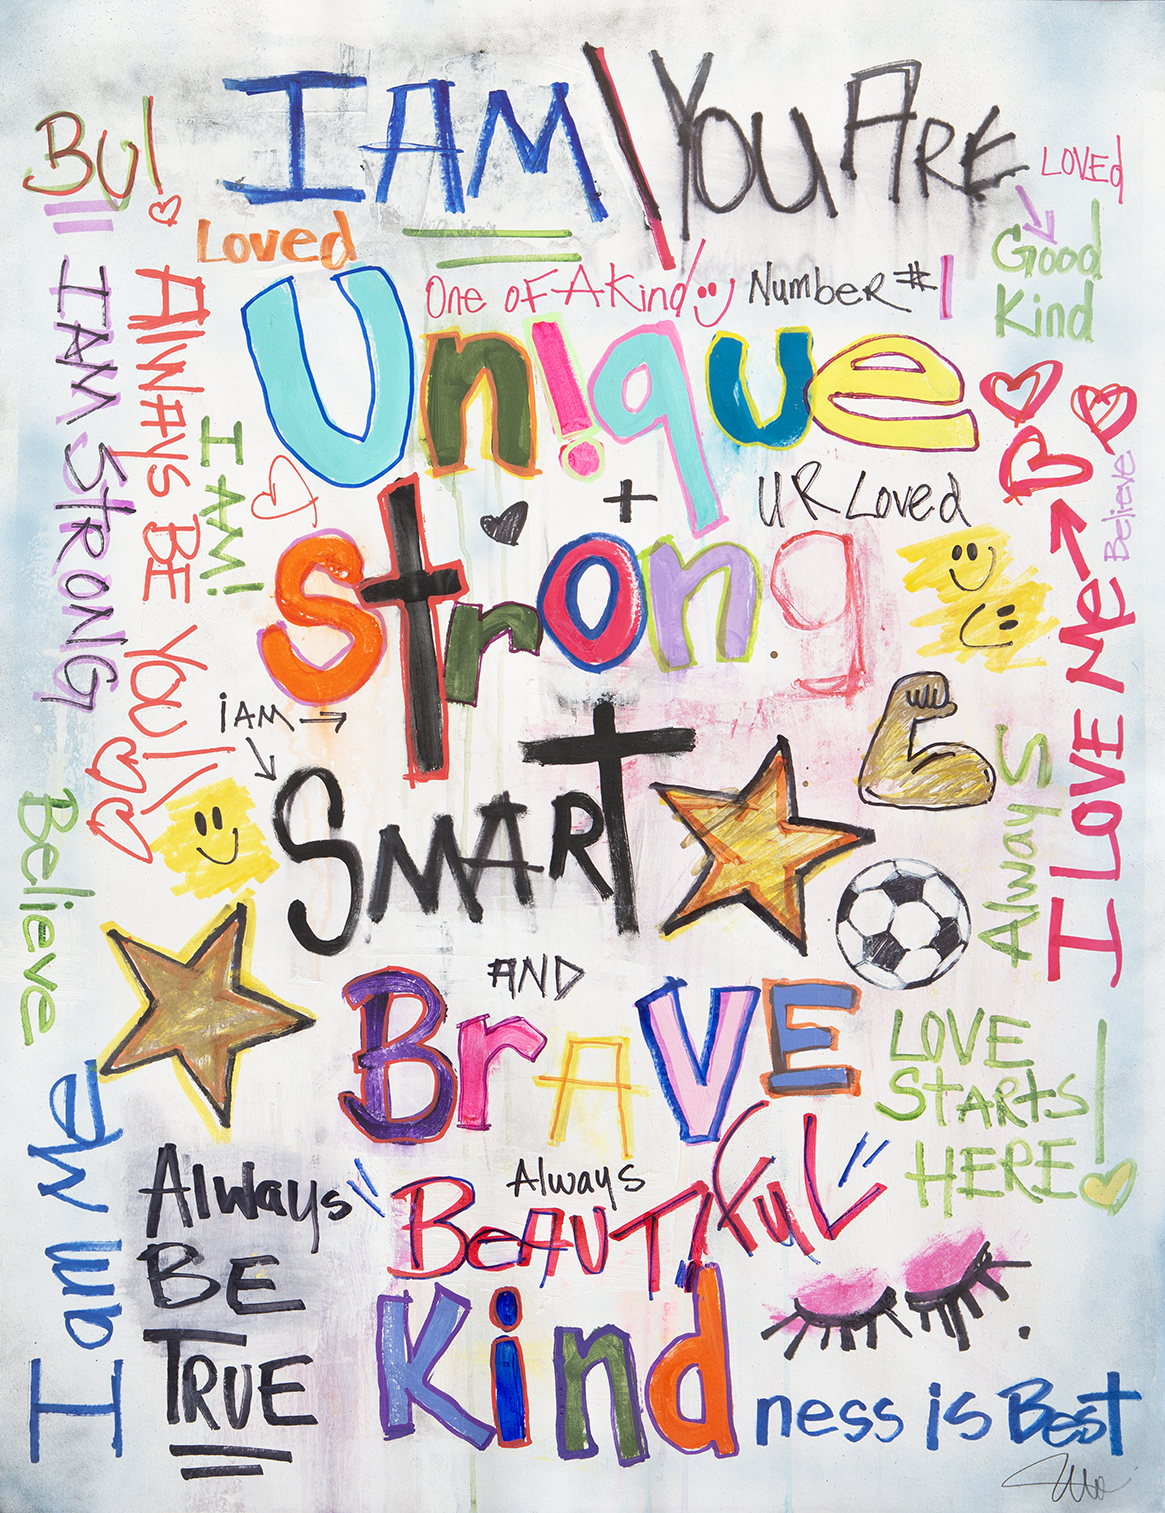 I AM \ YOU ARE
LOVEd
Good
Kind
BU!
Loved
One OF A Kind
Number #1
Un!que
+
U R Loved
Strong
I AM STRONG
AlwAys BE YOU!
I AM!
iAM
SMART
AND
BrAVE
Always
BeAUTiFuL
Kind
ness is Best
Believe
I am Me
Always
BE
TRUE
Believe
I LOVE Me
Always
LOVE
StArts
HERE